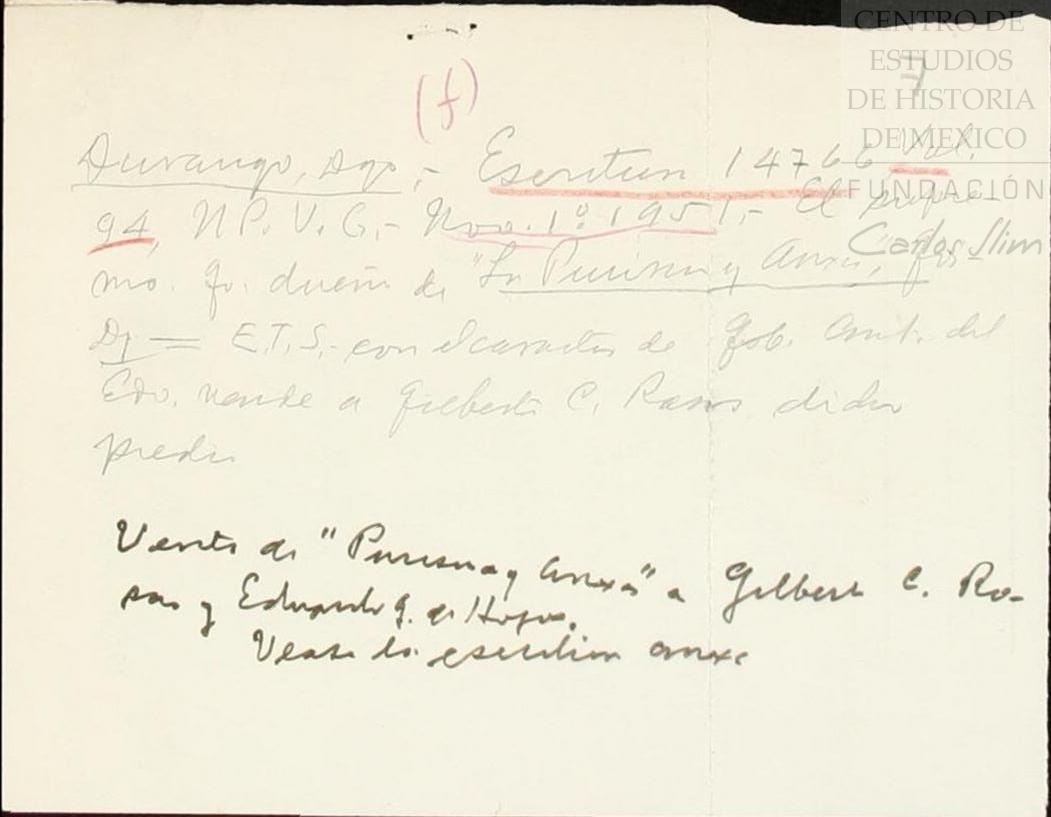 CENTRO DE
ESTUDIOS
DE HISTORIA
DE MEXICO
FUNDACIÓN
Carlos Slim
F
(f)
Durango, Dgo.- Escritura 14766, Vol.
94, N.P.V.G.- Nov. 1º 1951.- El
mo. Gr. dueño de "La Purísima y Anexas,"
E.T.S.- con el caracter de Gob. Const. del
Edo. vende a Gilberto C. Rosas dicho
predio
Venta de "Purisima y Anexas" a Gilberto C. Ro-
sas y Eduardo G. de Hoyos.
Vease la escritura anexa